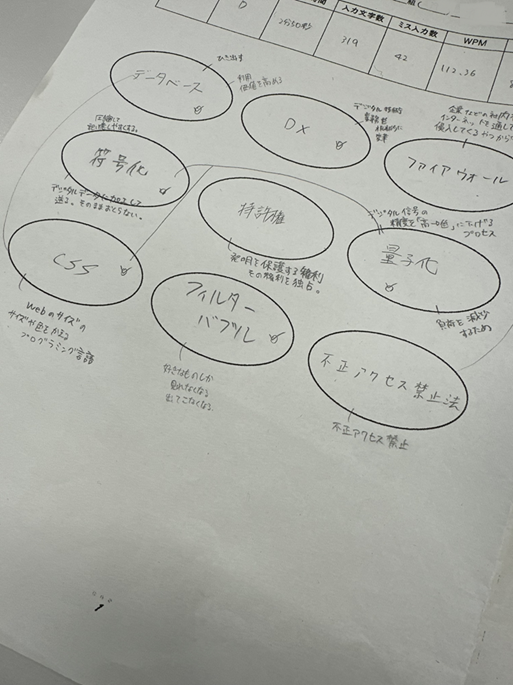 組(
入力文字数
ミス入力数
WPM
D
2分50秒
319
42
112.36
ひき出す
データベース
利用
価値を高める
DX
デジタル技術
インターネットを通して
侵入してくるやつから
ファイアウォール
圧縮して
処理しやすくする。
符号化
デジタルデータに加工して
送る。そのままおくらない。
特許権
発明を保護する権利
その権利を独占。
デジタル信号の
精度を「高→低」に下げる
プロセス
量子化
負荷を減少
するため
CSS
Webのサイズの
サイズや色をかえる
プログラミング言語
フィルター
バブル
好きなものしか
見れなくなる
出てこなくなる
不正アクセス禁止法
不正アクセス禁止
1